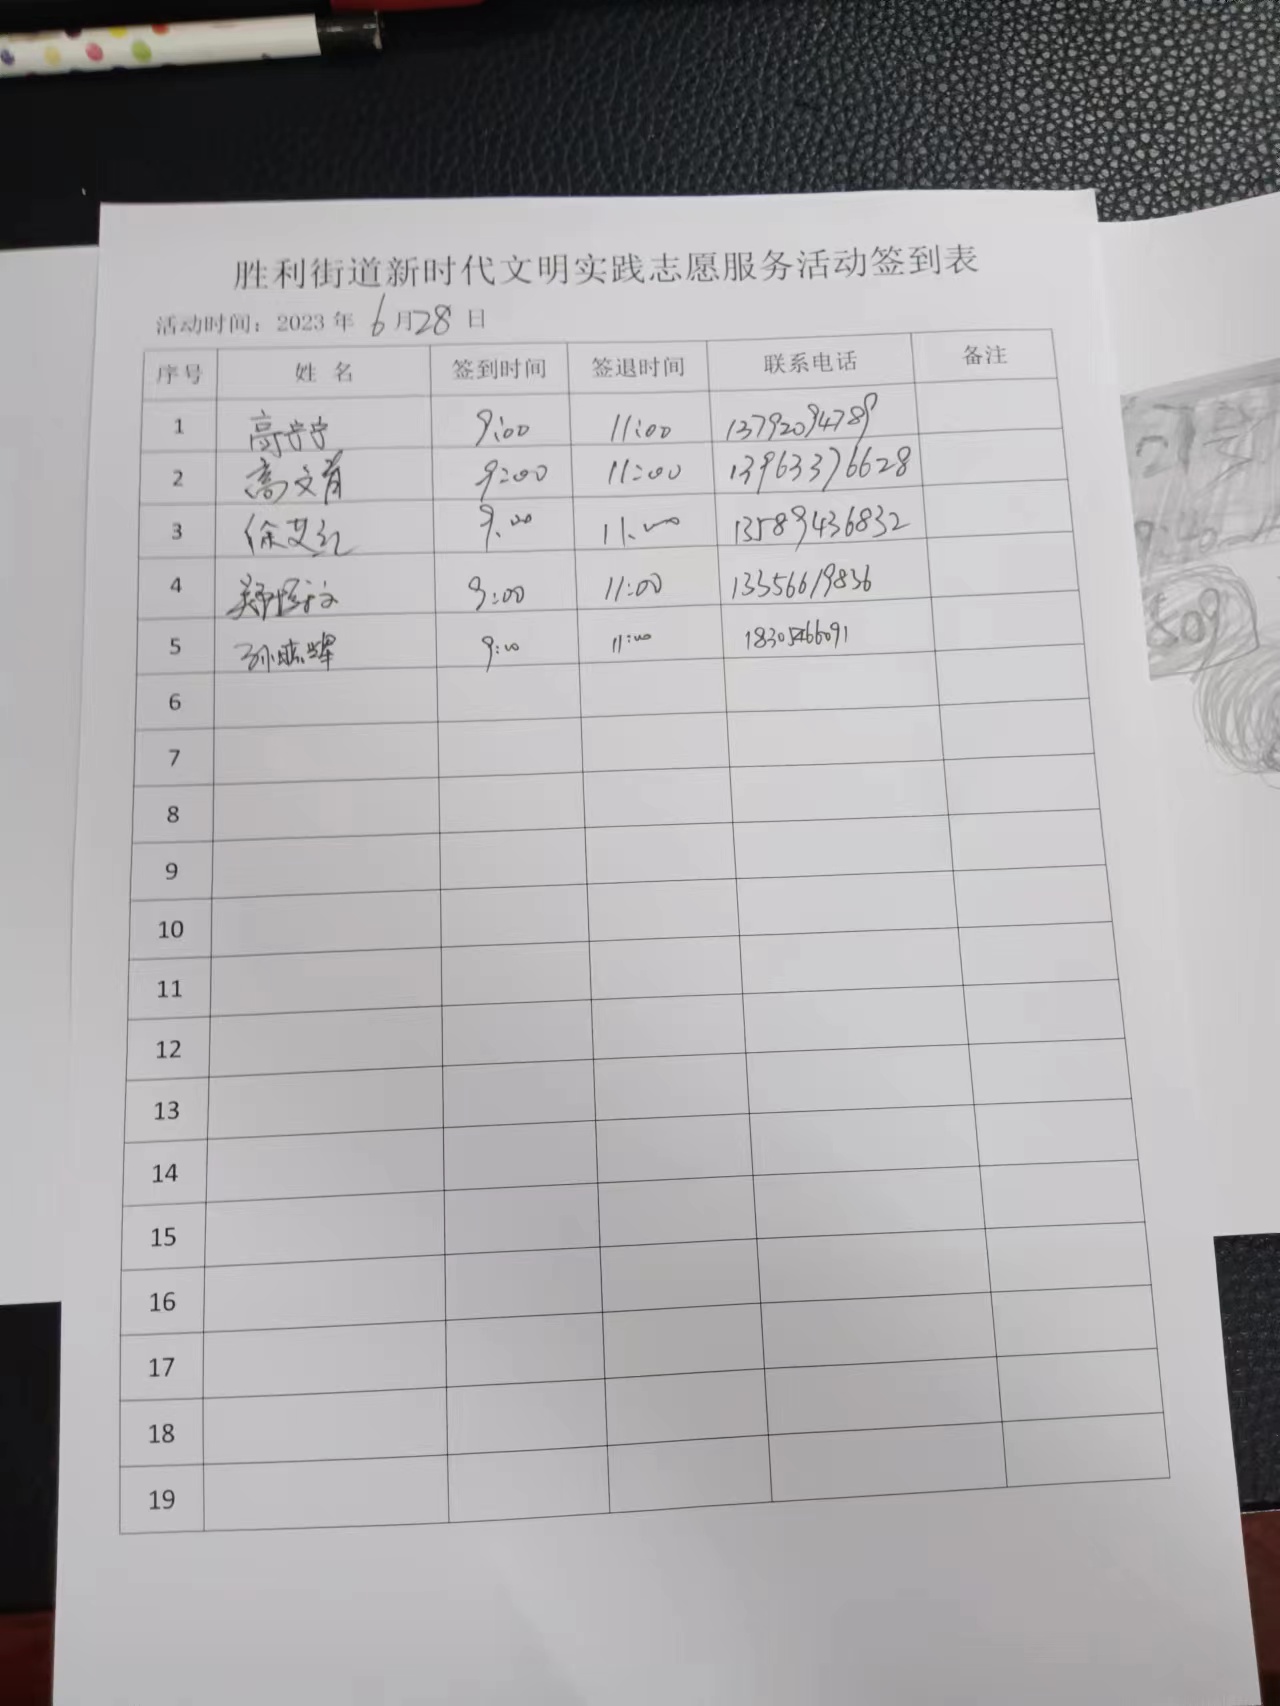 胜利街道新时代文明实践志愿服务活动签到表
活动时间：2023 年 6月28 日
序号 姓 名 签到时间 签退时间 联系电话 备注
1 高宁宁 9:00 11:00 13792094789
2 高文肖 9:00 11:00 13963376628
3 徐艾红 9:00 11:00 13589436832
4 郑 文 9:00 11:00 13356619836
5 孙 辉 9:00 11:00 18305466091
6
7
8
9
10
11
12
13
14
15
16
17
18
19
509